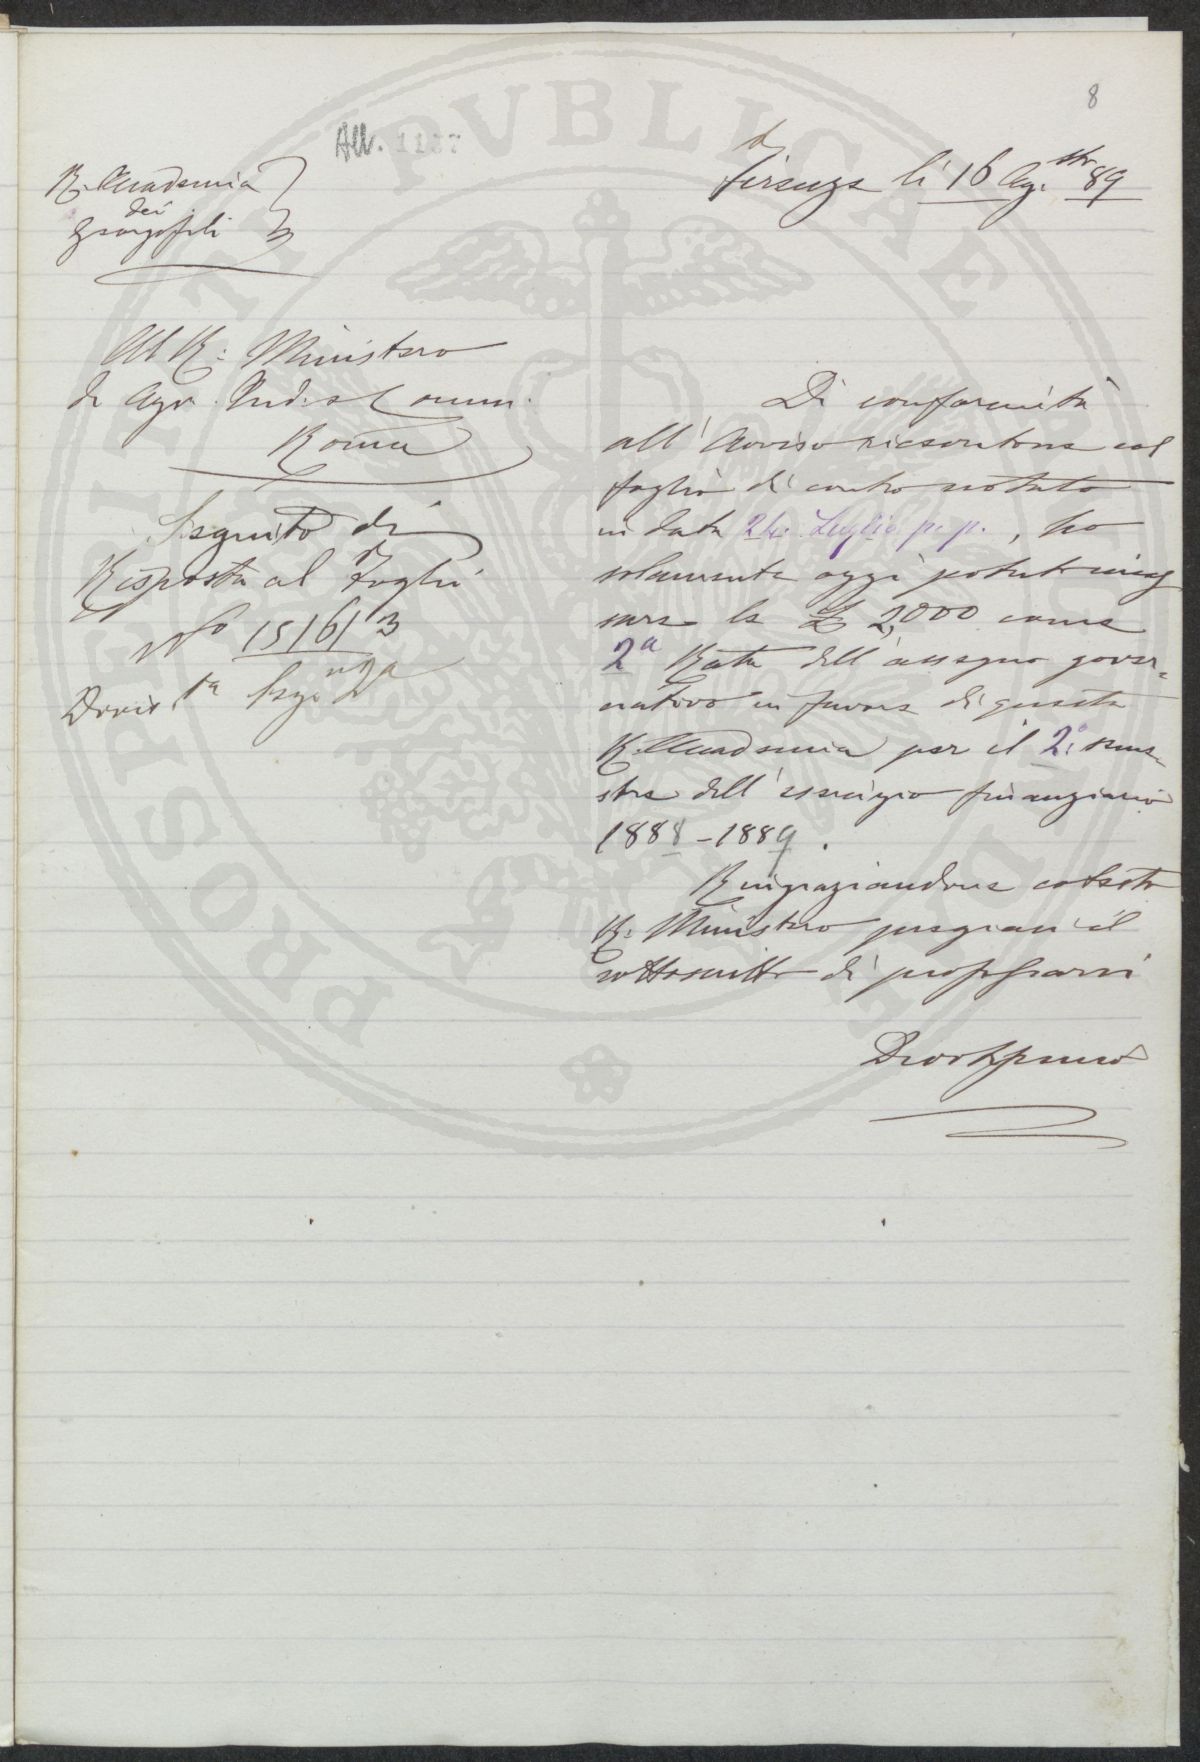 8
All. 1127
R. Accademia
dei
Georgofili
Firenze li 16 Ag.sto 89
Al R: Ministero
di Agr. Ind. e Comm.
Roma
Seguito di
Risposta al Foglio
N° 15161 3
Divis. 1a Sez.
Di conformità
all'Avviso riscontrone col
foglio di contro notato
in data 24. Luglio p.p., ho
solamente oggi potuto incas
sare le £ 2,000 come
2a Rata dell'assegno gover=
nativo in favore di questa
R. Accademia per il 2° seme-
stre dell'esercizio finanziario
1888-1889.
Ringraziandone cotesto
R: Ministero pregiasi il
sottoscritto di professarsi
Devotissimo
PROSPERITATI PVBLICAE